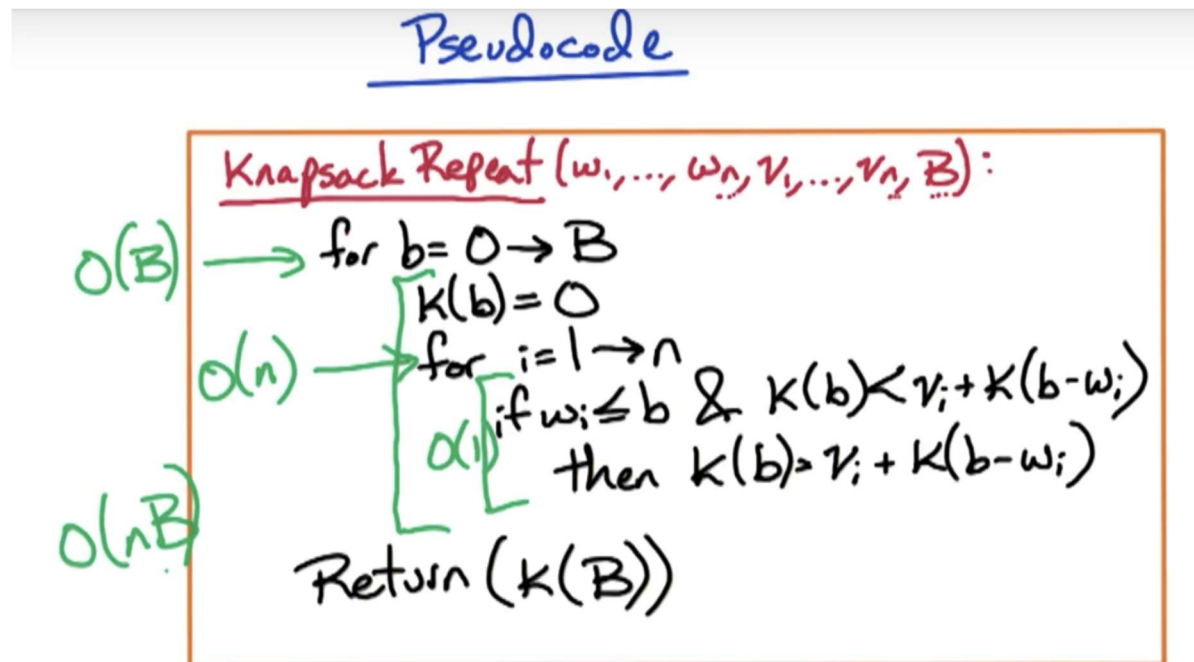 Pseudocode
Knapsack Repeat (w₁,..., wₙ, v₁,..., vₙ, B):
O(B) → for b= 0→B
K(b) = 0
O(n) → for i=1→n
if wᵢ≤b & K(b)<vᵢ+K(b-wᵢ)
O(1)
then K(b)=vᵢ+K(b-wᵢ)
O(nB)
Return (K(B))